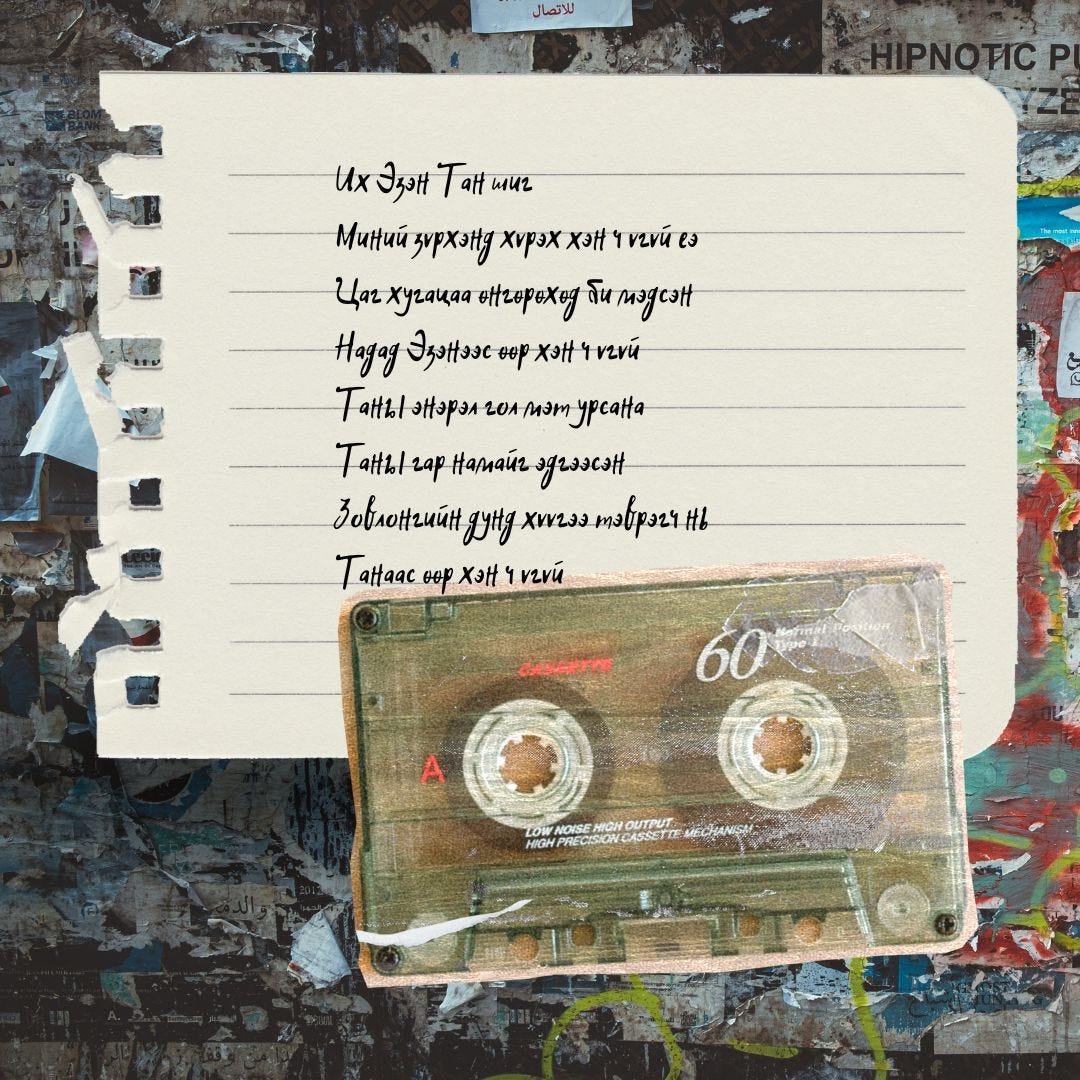 للاتصال
HIPNOTIC PU
YZE
BLOM
BANK
The most inno
Их Эзэн Тан шиг
Миний зvрхэнд хvрэх хэн ч vгvй еэ
Цаг хугацаа өнгөрөхөд би мэдсэн
Надад Эзэнээс өөр хэн ч vгvй
Таны энэрэл гол мэт урсана
Таны гар намайг эдгээсэн
Зовлонгийн дунд хvvгээ тэврэгч нь
Танаас өөр хэн ч vгvй
60
Normal Position
Type I
CASSETTE
A
LOW NOISE HIGH OUTPUT
HIGH PRECISION CASSETTE MECHANISM
2012
والدم